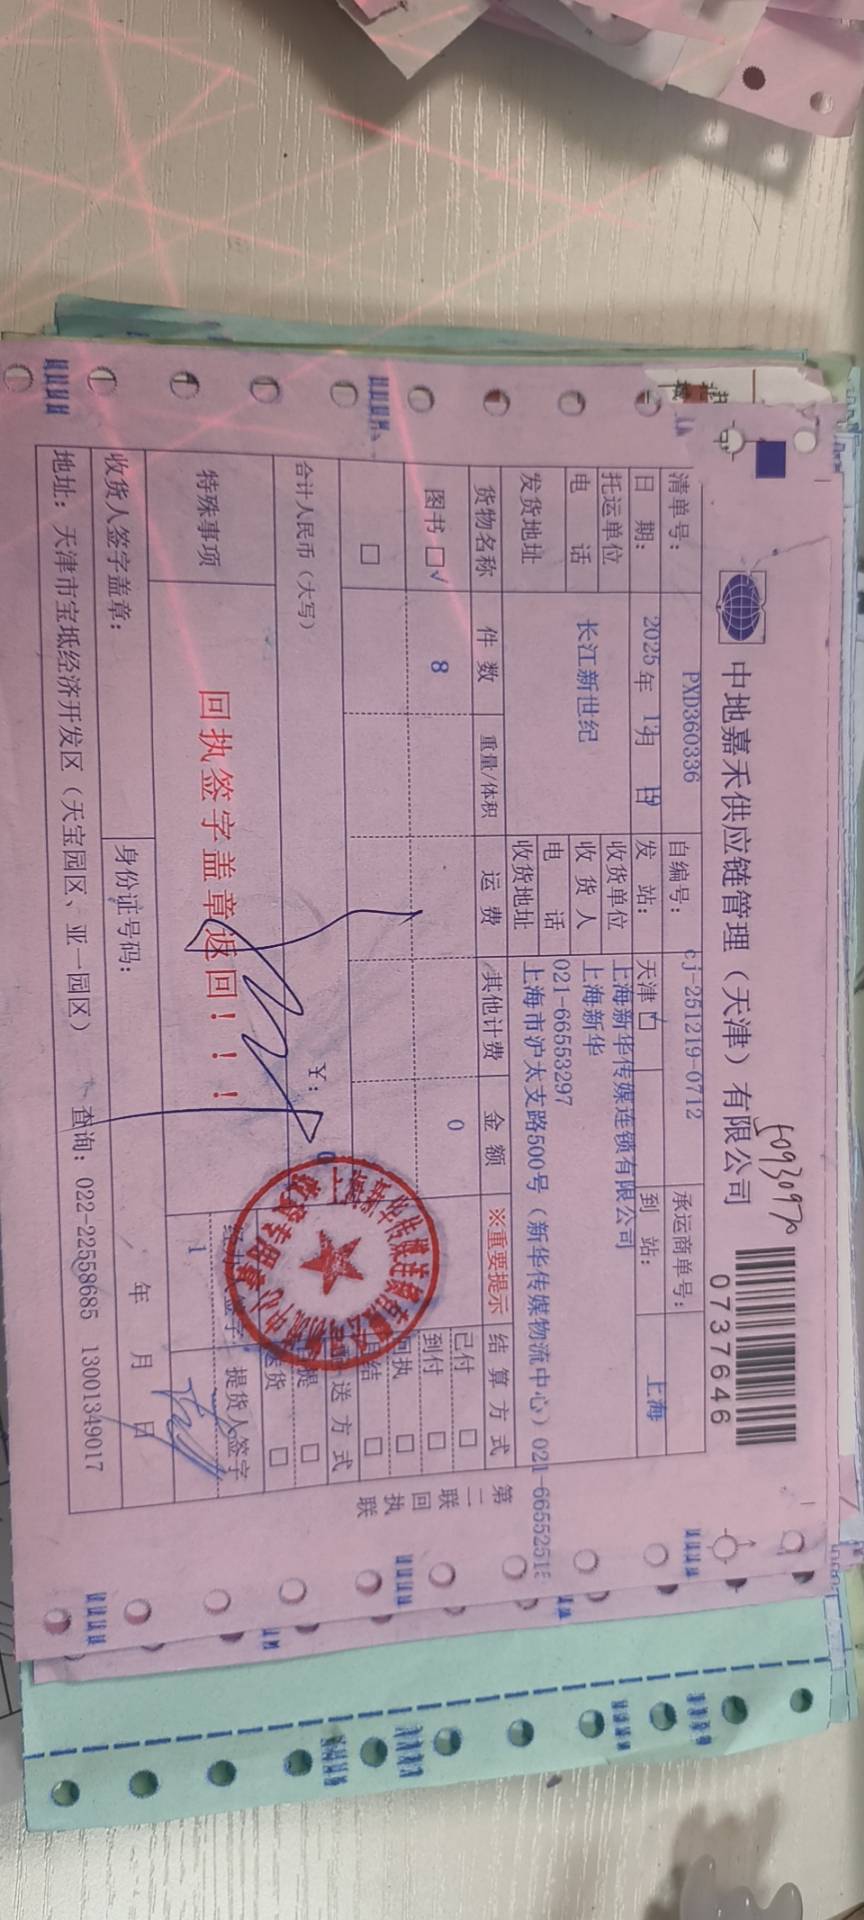 中地嘉禾供应链管理（天津）有限公司
0737646
清单号： PXD360336 自编号： cj-251219-0712 承运商单号：
日 期： 2025年 12月 19日 发 站： 天津 到 站： 上海
托运单位 长江新世纪 收货单位 上海新华传媒连锁有限公司
电 话 收 货 人 上海新华
电 话 021-66553297
发货地址 收货地址 上海市沪太支路500号（新华传媒物流中心）021-6655251
货物名称 件 数 重量/体积 运 费 其他计费 金 额 ※重要提示 结 算 方 式
图书 □√ 8 0 已付 □
到付 □
□ 回执 □
月结 □
合计人民币（大写） ¥： 0 送 方 式
自提 □
送货 □
特殊事项 回执签字盖章返回！！！ 经办人签字 提货人签字
1
收货人签字盖章： 身份证号码： 年 月 日
地址：天津市宝坻经济开发区（天宝园区、亚一园区） 查询：022-22558685 13001349017
第二联 回执联
上海新华传媒连锁有限公司